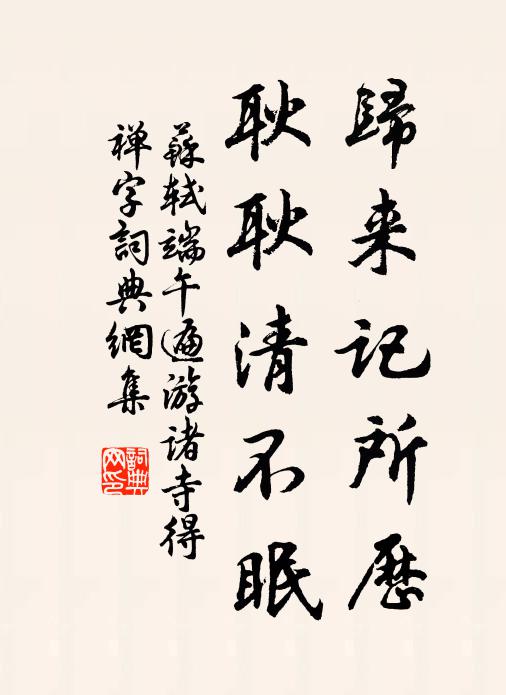 歸来記所歷
耿耿清不眠
蘇軾端午遍游诸寺得
禅字詞典網集
詞典网印